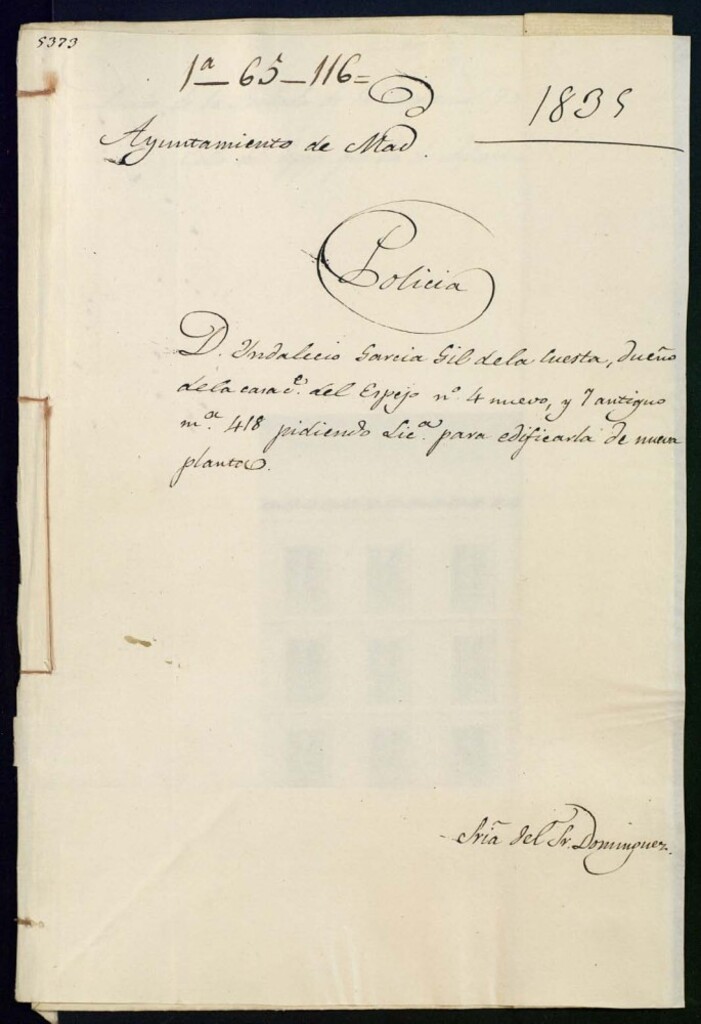 5373
1ª — 65 — 116 =
1835
Ayuntamiento de Mad.
Policia
D. Yndalecio Garcia Gil de la Cuesta, dueño
de la casa c.ᵉ del Espejo nº 4 nuevo, y 7 antiguo
mª 418 pidiendo Lic.ª para edificarla de nueva
planta.
Sria del Sr. Dominguez.